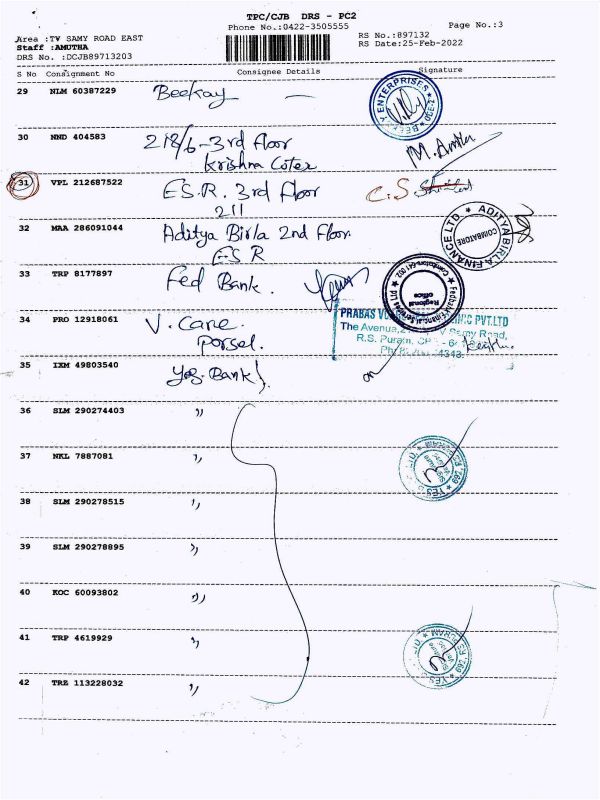 TPC/CJB DRS - PC2
Phone No.:0422-3505555
Page No.:3
Area :TV SAMY ROAD EAST
RS No.:897132
Staff :AMUTHA
RS Date:25-Feb-2022
DRS No. :DCJB89713203
S No Consignment No Consignee Details Signature
29 NLM 60387229 Beekay —
BEEKAY ENTERPRISES
30 NND 404583 218/6 - 3rd floor
Krishna
M.
31 VPL 212687522 E.S.R. 3rd Floor C.S
211
32 MAA 286091044 Aditya Birla 2nd Floor
ESR
ADITYA BIRLA FINANCE LTD.
COIMBATORE
33 TRP 8177897 Fed Bank.
Fedbank Financial Services
Regional Office
34 PRO 12918061 V. Care.
Porsel.
PRABAS PVT.LTD
The Avenue, Samy Road,
R.S. Puram,
35 IXM 49803540 Yes Bank
36 SLM 290274403 ,,
37 NKL 7887081 ,,
38 SLM 290278515 ,,
39 SLM 290278895 ,,
40 KOC 60093802 ,,
41 TRP 4619929 ,,
42 TRZ 113228032 ,,